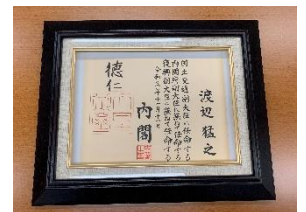 渡辺猛之
国土交通副大臣に任命する
内閣府副大臣に兼ねて任命する
復興副大臣に兼ねて任命する
徳仁
内閣